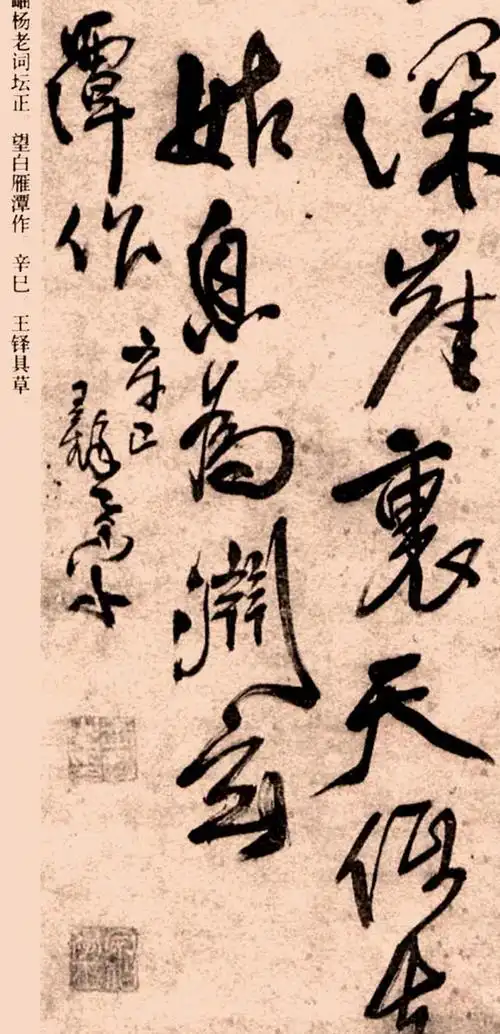 深崖裏天低
姑息為淵
潭作
辛巳
王鐸具草
杨老词坛正 望白雁潭作 辛巳 王铎具草